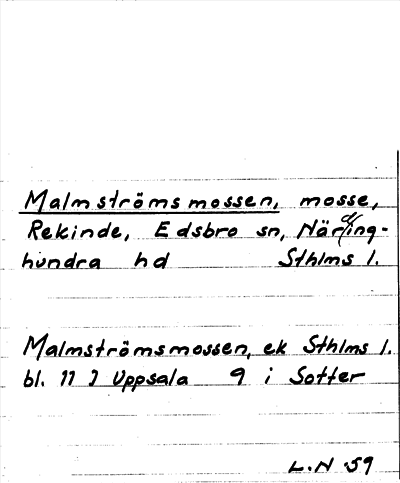 Malmströmsmossen, mosse,
Rekinde, Edsbro sn, Närding-
hundra hd Sthlms l.
Malmströmsmossen, ek Sthlms l.
bl. 11 J Uppsala 9 i Sotter
L.N 59